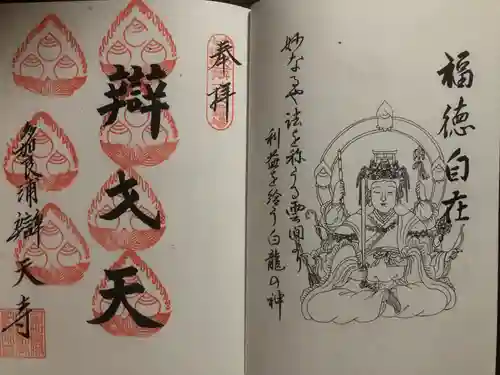 福徳自在
妙なるや法を称うる雲間より
利益を給う白龍の神
奉拝
辯才天
浦辯天寺